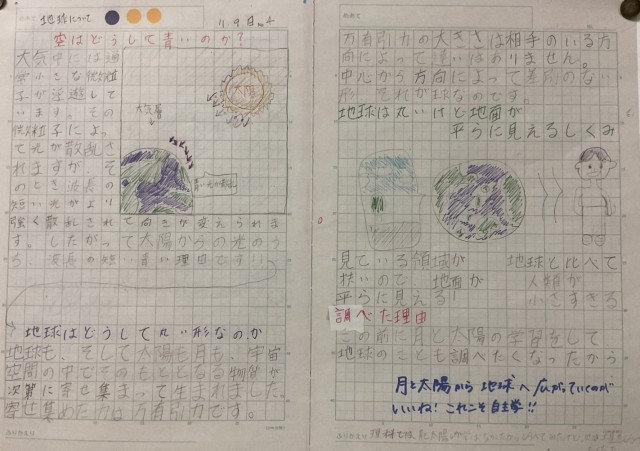 地球について
11.9日 No.4
空はどうして青いのか?
大気中には過
小さな微粒
子が浮遊して
います。その
微粒子によっ
て光が散乱さ
れますが、そ
のとき波長の
短い光がより
強く散乱されて向きが変えられま
す。したがって太陽からの光のう
ち、波長の短い青い理由です。
太陽
大気層
地球はどうして丸い形なのか
地球も、そして太陽も月も、宇宙
空間の中でそのもととなる物質が
次第に寄せ集まって生まれました。
寄せ集めた力は万有引力です。
ふりかえり
万有引力の大きさは相手のいる方
向によって違いはありません。
中心から方向によって差別のない
形、それが球なのです。
地球は丸いけど地面が
平らに見えるしくみ
見ている領域が
狭いので、地面が
平らに見える!
地球と比べて
人類が
小さすぎる
調べた理由
この前に月と太陽の学習をして
地球のことも調べたくなったから
月と太陽から地球へ広がっていくのが
いいね!これこそ自主学!!
ふりかえり